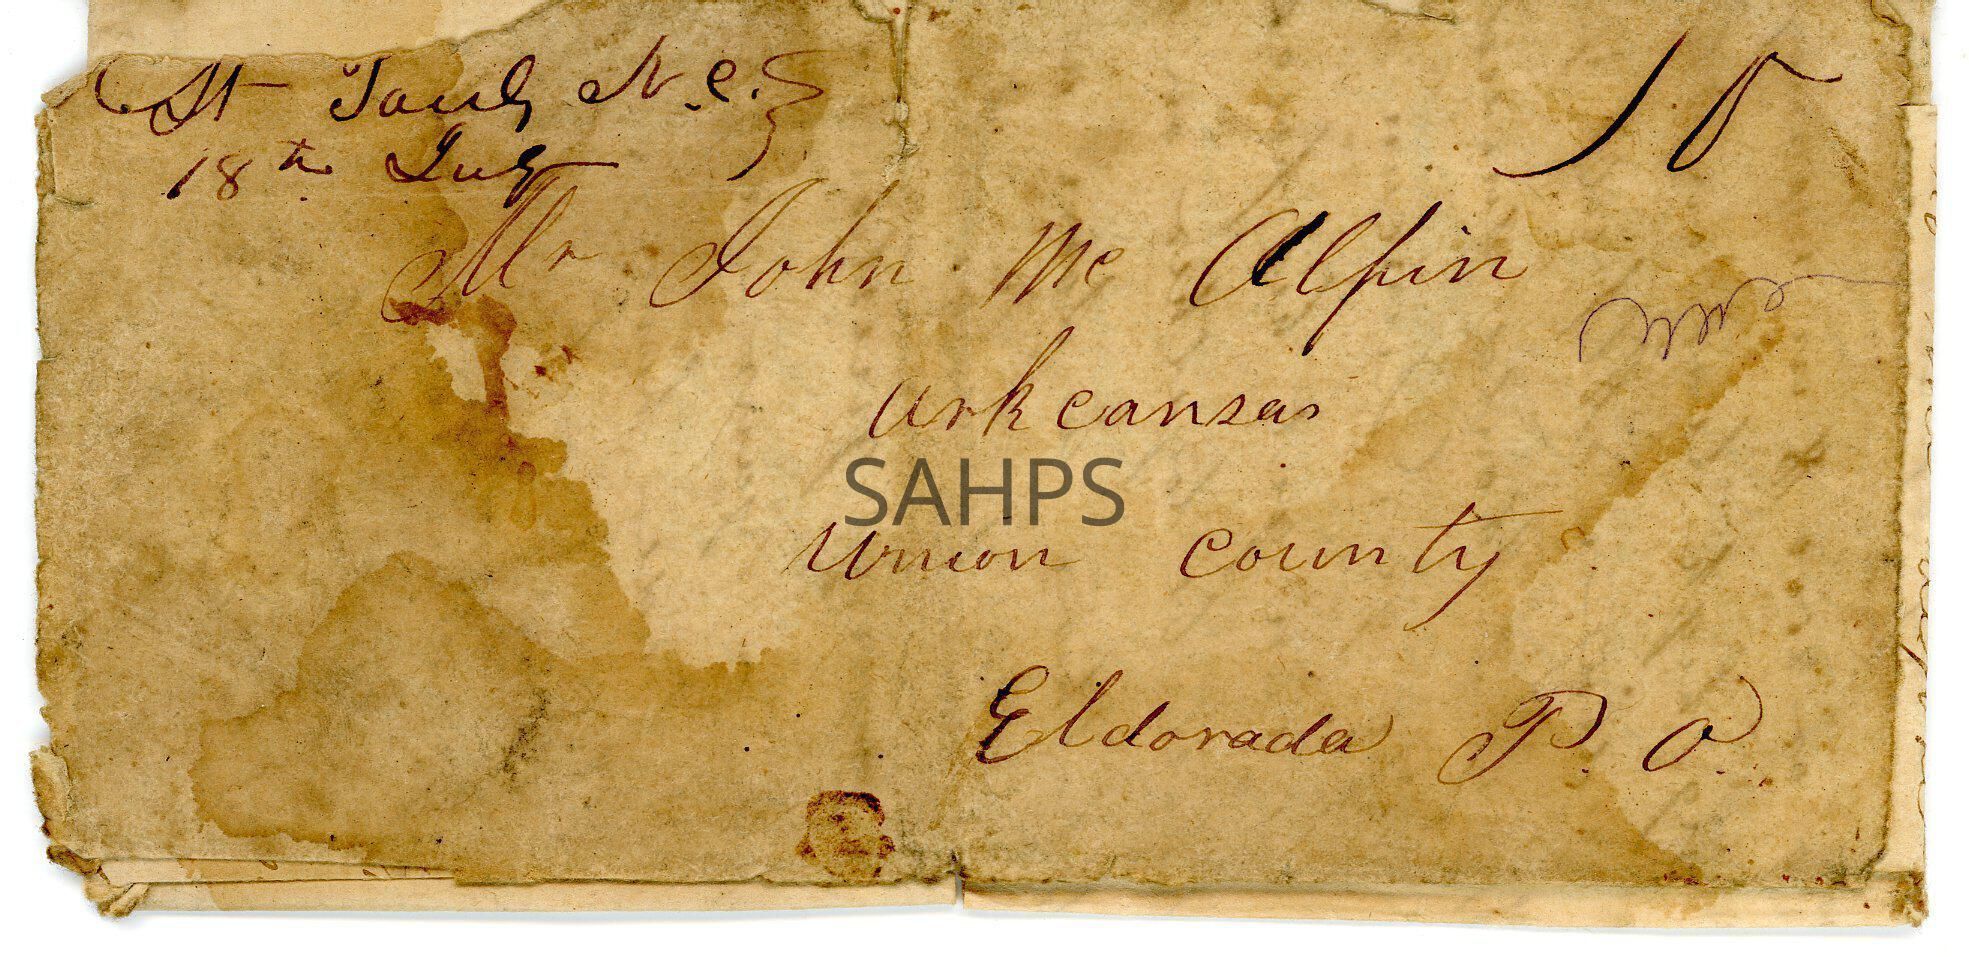 St Pauls N.C.
18th July
10
Mr John Mc Alpin
Arkcansas
SAHPS
Union County
Eldorada P. O.